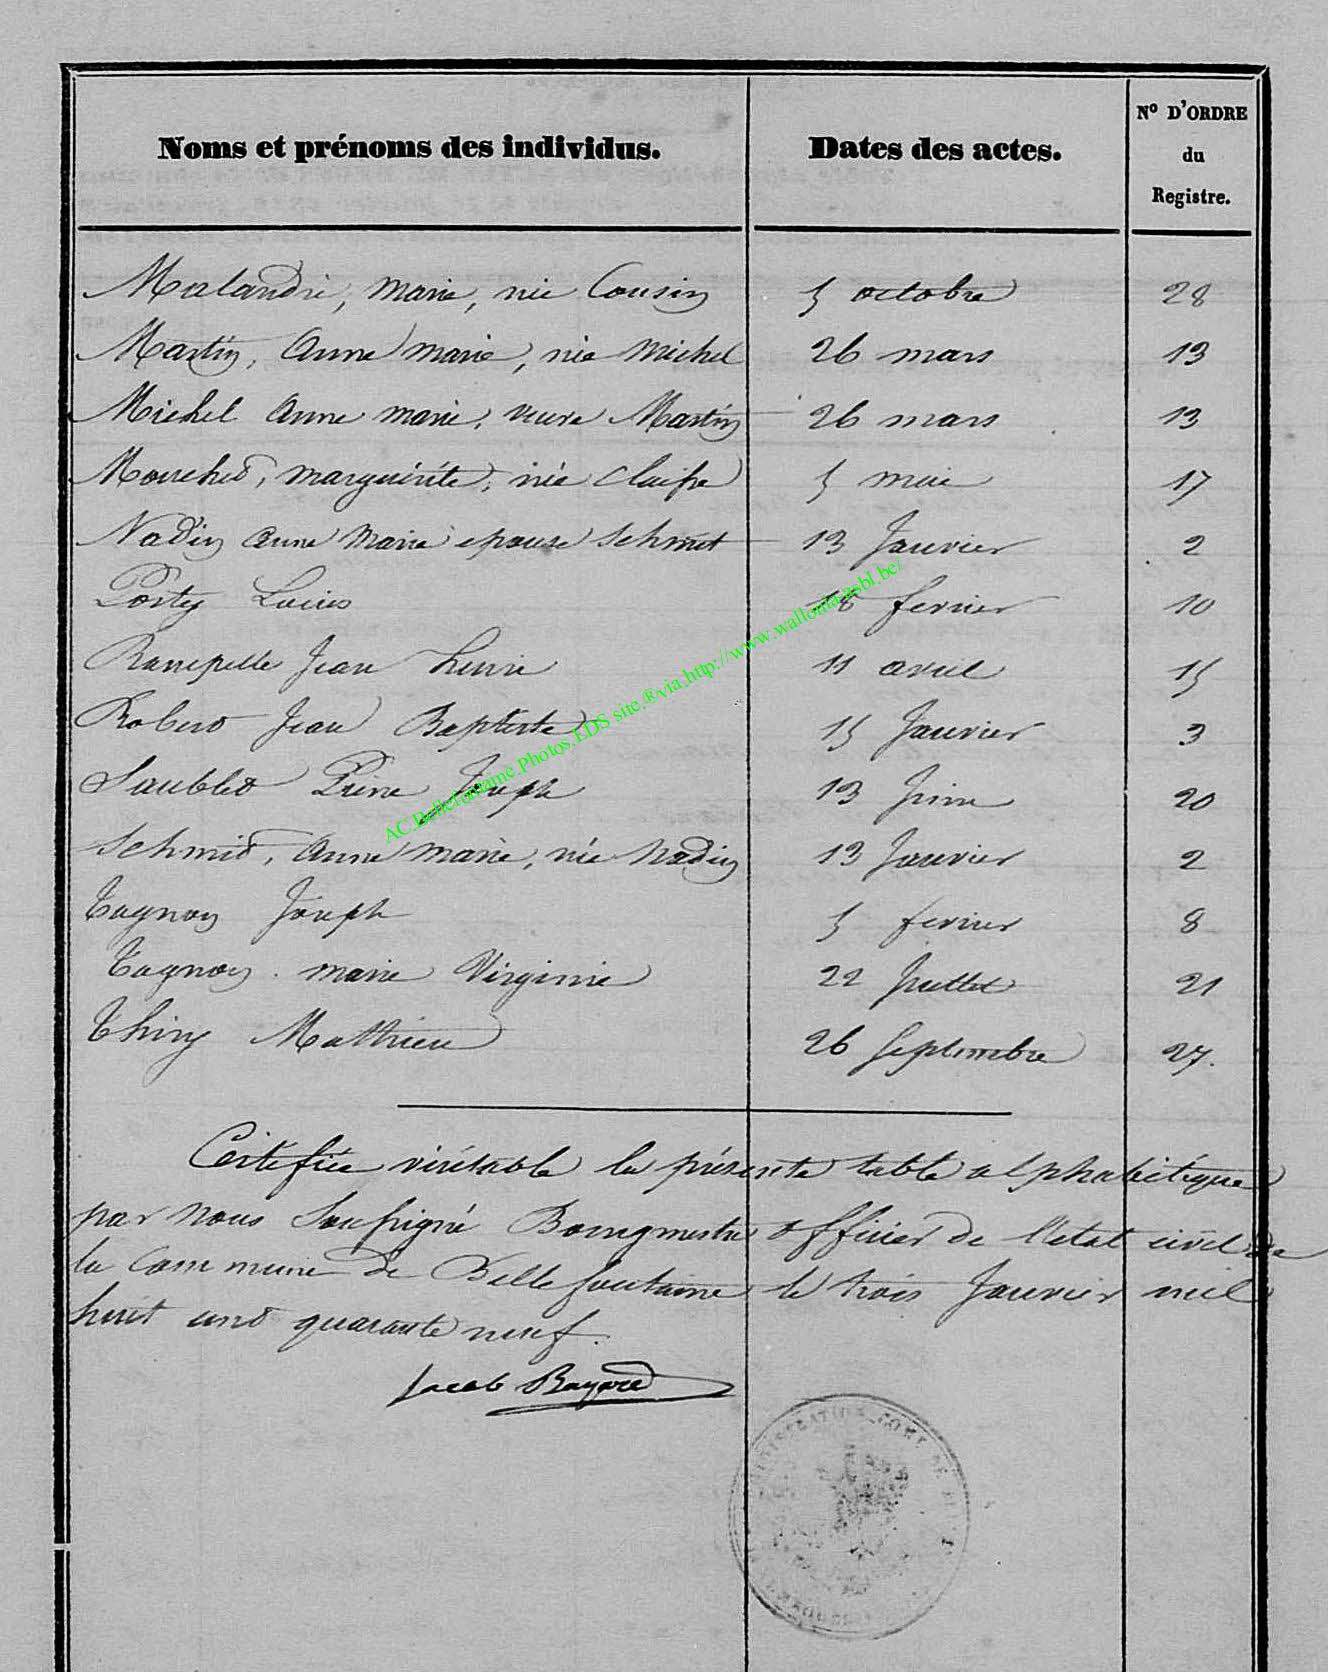 Noms et prénoms des individus. Dates des actes. N° D'ORDRE du Registre.
Malandri, Marie, née Cousin 5 octobre 28
Martin, Anne marie, née Michel 26 mars 13
Michel Anne marie, veuve Martin 26 mars 13
Mouchet, marguérite, née Claisse 5 mai 17
Nadin Anne Marie epouse Schmit 13 Janvier 2
Posty Louis 18 fevrier 10
Jean henri 11 avril 15
Robert Jean Baptiste 15 Janvier 3
Saublet Pierre Joseph 13 Juin 20
Schmid, Anne marie, née Nadin 13 Janvier 2
Tagnon Joseph 5 fevrier 8
Tagnon marie Virginie 22 Juillet 21
Thiry Mathieu 26 Septembre 27.
Certifiée véritable la présente table alphabétique
par Nous Soussigné Bourgmestre officier de l'etat civil de
la Commune de Bellefontaine le trois Janvier mil
huit cent quarante neuf.
Jacob Bayard
AC.Bellefontaine.Photos.LDS site.®via.http://www.wallonia.asbl.be/